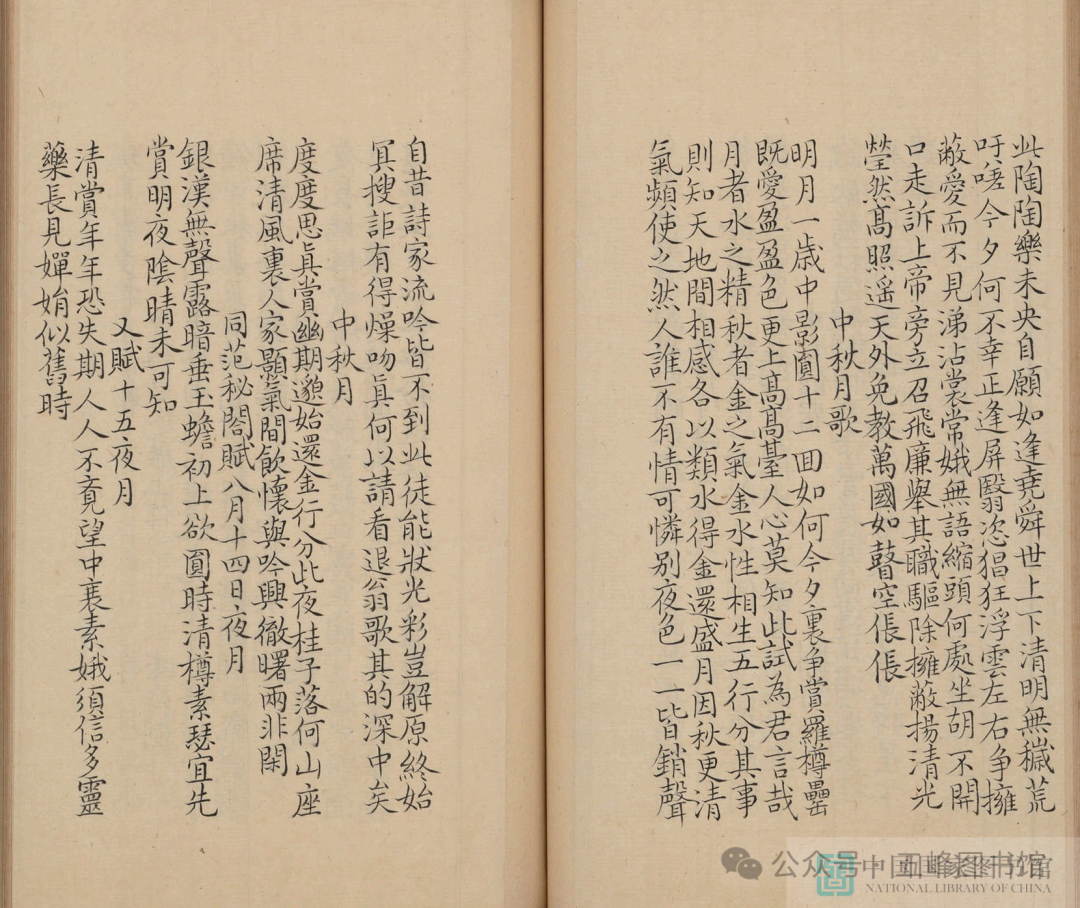 此陶陶樂未央自願如逢堯舜世上下清明無穢荒
吁嗟今夕何不幸正逢屏翳恣猖狂浮雲左右争擁
蔽愛而不見涕沾裳常娥無語縮頭何處坐胡不開
口走訴上帝旁立召飛廉舉其職驅除擁蔽揚清光
瑩然髙照遥天外免教萬國如瞽空倀倀
中秋月歌
明月一歳中影圓十二囬如何今夕裏争賞羅樽罍
既愛盈盈色更上髙髙臺人心莫知此試為君言哉
月者水之精秋者金之氣金水性相生五行分其事
則知天地間相感各以類水得金還盛月因秋更清
氣頻使之然人誰不有情可憐别夜色一一皆銷聲
自昔詩家流吟皆不到此徒能狀光彩豈解原終始
冥搜詎有得燥吻眞何以請看退翁歌其的深中矣
中秋月
度度思眞賞幽期邈始還金行分此夜桂子落何山座
席清風裏人家顥氣間飲懷與吟興徹曙兩非閑
同范秘閣賦八月十四日夜月
銀漢無聲露暗垂玉蟾初上欲圓時清樽素瑟宜先
賞明夜陰晴未可知
又賦十五夜月
清賞年年恐失期人人不竟望中衰素娥須信多靈
藥長見嬋娟似舊時
公众号·中国
NATIONAL LIBRARY OF CHINA